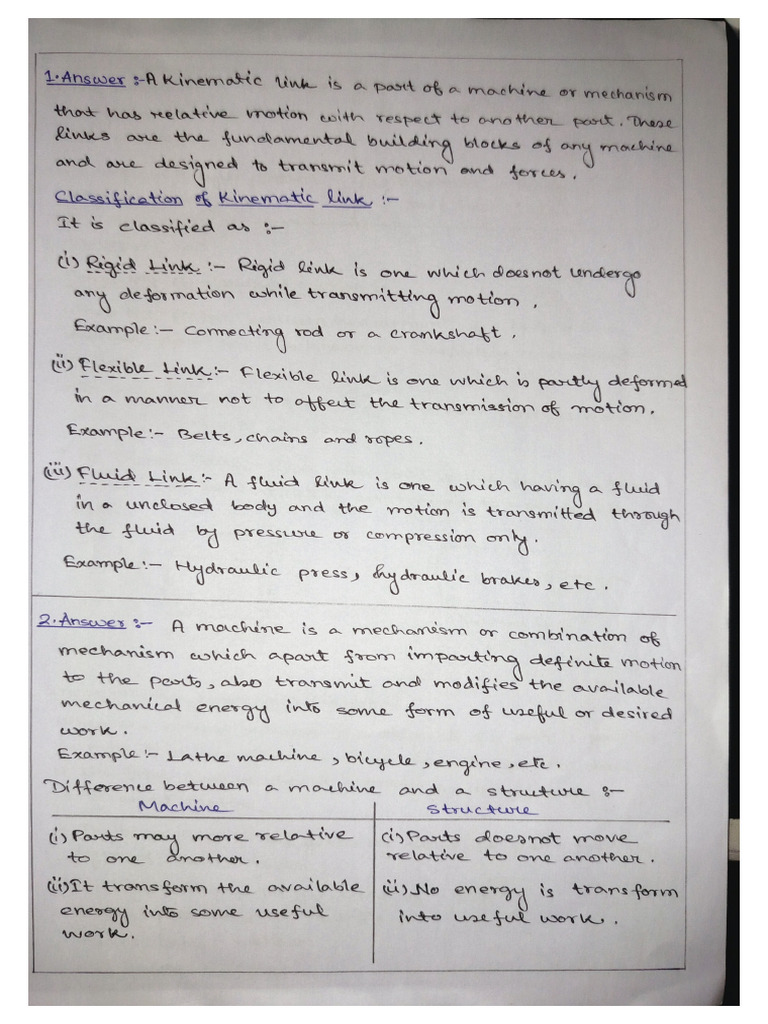 1. Answer :- A Kinematic link is a part of a machine or mechanism
that has relative motion with respect to another part. These
links are the fundamental building blocks of any machine
and are designed to transmit motion and forces.
Classification of Kinematic link :-
It is classified as :-
(i) Rigid Link :- Rigid link is one which doesnot undergo
any deformation while transmitting motion.
Example :- Connecting rod or a crankshaft.
(ii) Flexible Link :- Flexible link is one which is partly deformed
in a manner not to affect the transmission of motion.
Example :- Belts, chains and ropes.
(iii) Fluid Link :- A fluid link is one which having a fluid
in a unclosed body and the motion is transmitted through
the fluid by pressure or compression only.
Example :- Hydraulic press, hydraulic brakes, etc.
2. Answer :- A machine is a mechanism or combination of
mechanism which apart from imparting definite motion
to the parts, also transmit and modifies the available
mechanical energy into some form of useful or desired
work.
Example :- Lathe machine, bicycle, engine, etc.
Difference between a machine and a structure :-
Machine
(i) Parts may more relative
to one another.
(ii) It transform the available
energy into some useful
work.
Structure
(i) Parts doesnot move
relative to one another.
(ii) No energy is transform
into useful work.